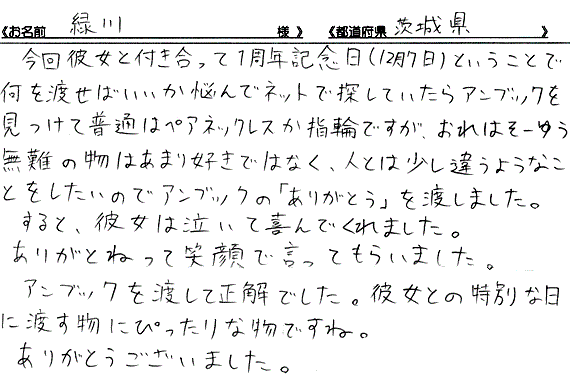 《お名前 緑川 様 》 《都道府県 茨城県 》
今回彼女と付き合って1周年記念日(12月7日)ということで
何を渡せばいいか悩んでネットで探していたらアンブックを
見つけて普通はペアネックレスか指輪ですが、おれはそーゆう
無難の物はあまり好きではなく、人とは少し違うようなこ
とをしたいのでアンブックの「ありがとう」を渡しました。
すると、彼女は泣いて喜んでくれました。
ありがとねって笑顔で言ってもらいました。
アンブックを渡して正解でした。彼女との特別な日
に渡す物にぴったりな物ですね。
ありがとうございました。